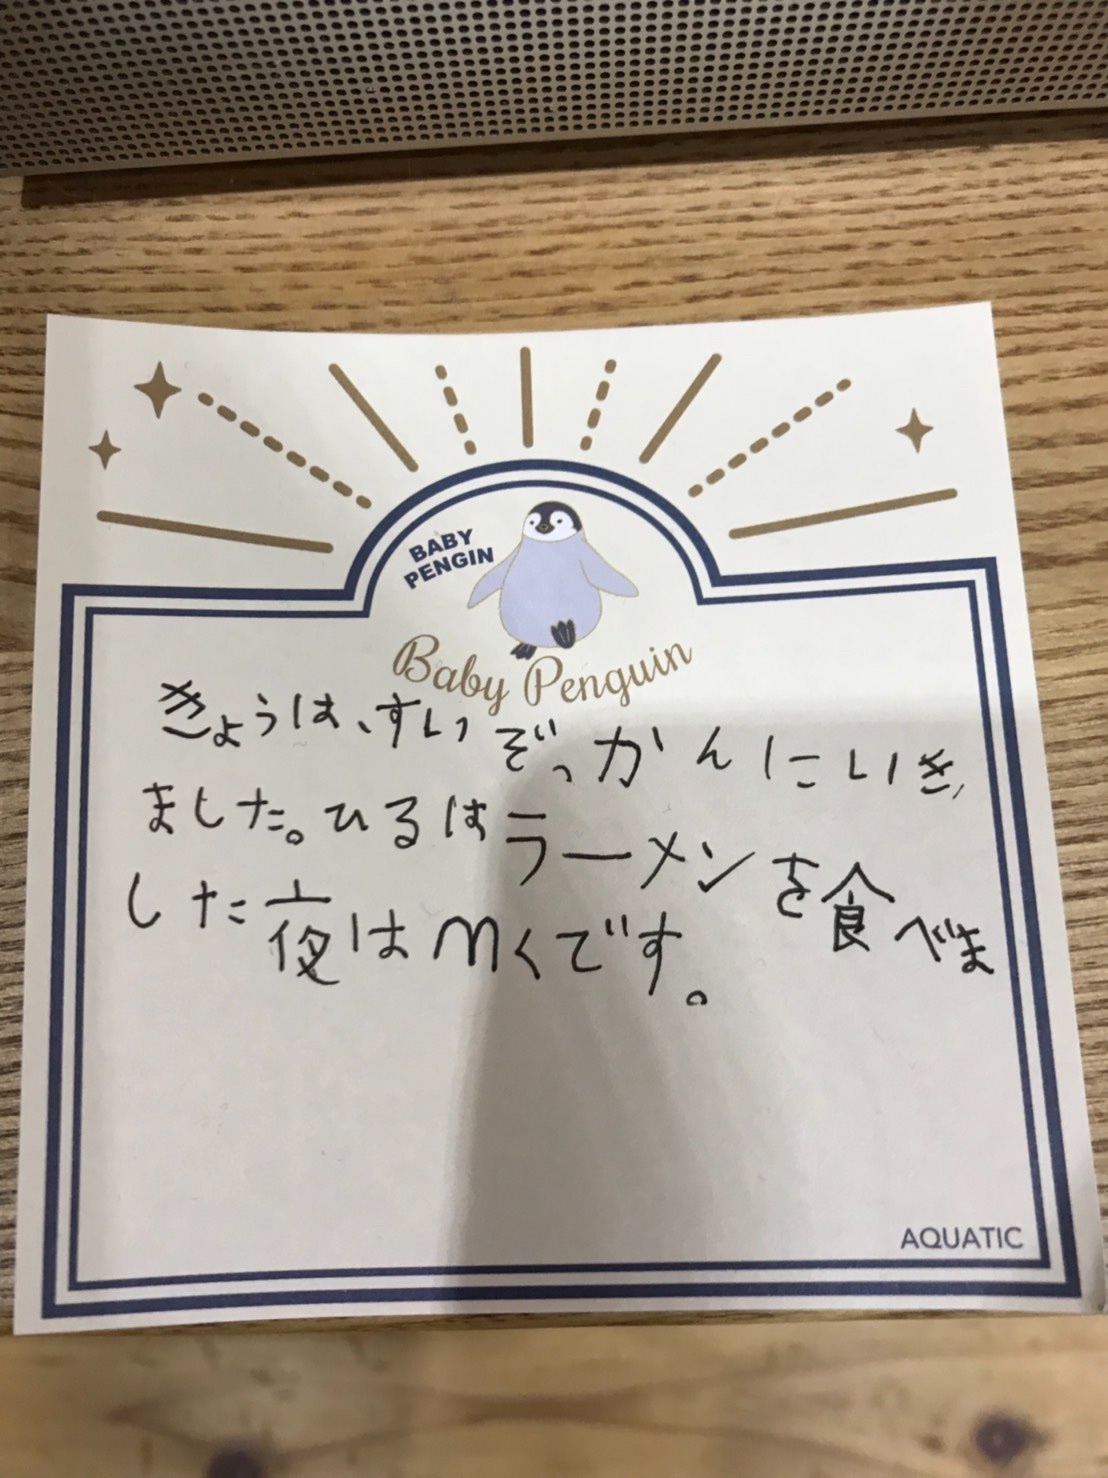 BABY
PENGIN
Baby Penguin
きょうは、すいぞっかんにいき
ました。ひるはラーメンを食べま
した夜はくです。
AQUATIC